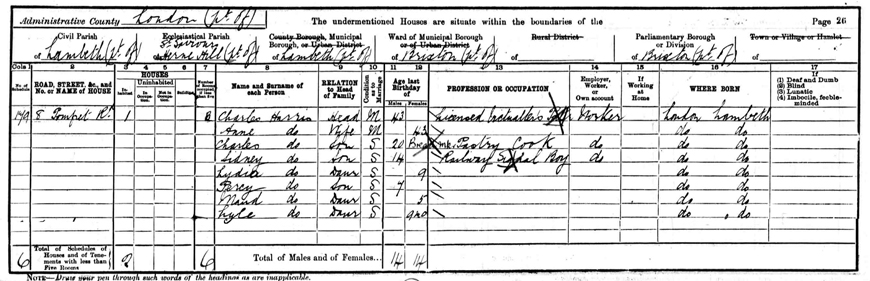 Administrative County London (pt. of) The undermentioned Houses are situate within the boundaries of the Page 26
Civil Parish Ecclesiastical Parish County Borough, Municipal Borough, or Urban District Ward of Municipal Borough or of Urban District Rural District Parliamentary Borough or Division Town or Village or Hamlet
of Lambeth (pt. of) of St Saviour Herne Hill (pt of) of Lambeth (pt of) of Brixton (pt of) of of Brixton (pt of) of
Cols. 1 2 3 4 5 6 7 8 9 10 11 12 13 14 15 16 17
No. of Schedule ROAD, STREET, &c., and No. or NAME of HOUSE HOUSES Inhabited Uninhabited In Occupation Not in Occupation Building Name and Surname of each Person RELATION to Head of Family Condition as to Marriage Age last Birthday of Males Females PROFESSION OR OCCUPATION Employer, Worker, or Own account If Working at Home WHERE BORN (1) Deaf and Dumb (2) Blind (3) Lunatic (4) Imbecile, feeble-minded
179 8 Rd. 1 Charles Harris Head M 43 Licensed Worker London Lambeth
Anne do Wife M 43 do do
Charles do Son S 20 Pastry Cook do do do
Sidney do Son S 14 Railway Signal Boy do do do
Lydia do Daur S 9 do do
Percy do Son S 7 do do
Maud do Daur S 5 do do
do Daur S 9mo do do
6 Total of Schedules of Houses and of Tenements with less than Five Rooms 2 6 Total of Males and of Females... 14 14
NOTE—Draw your pen through such words of the headings as are inapplicable.